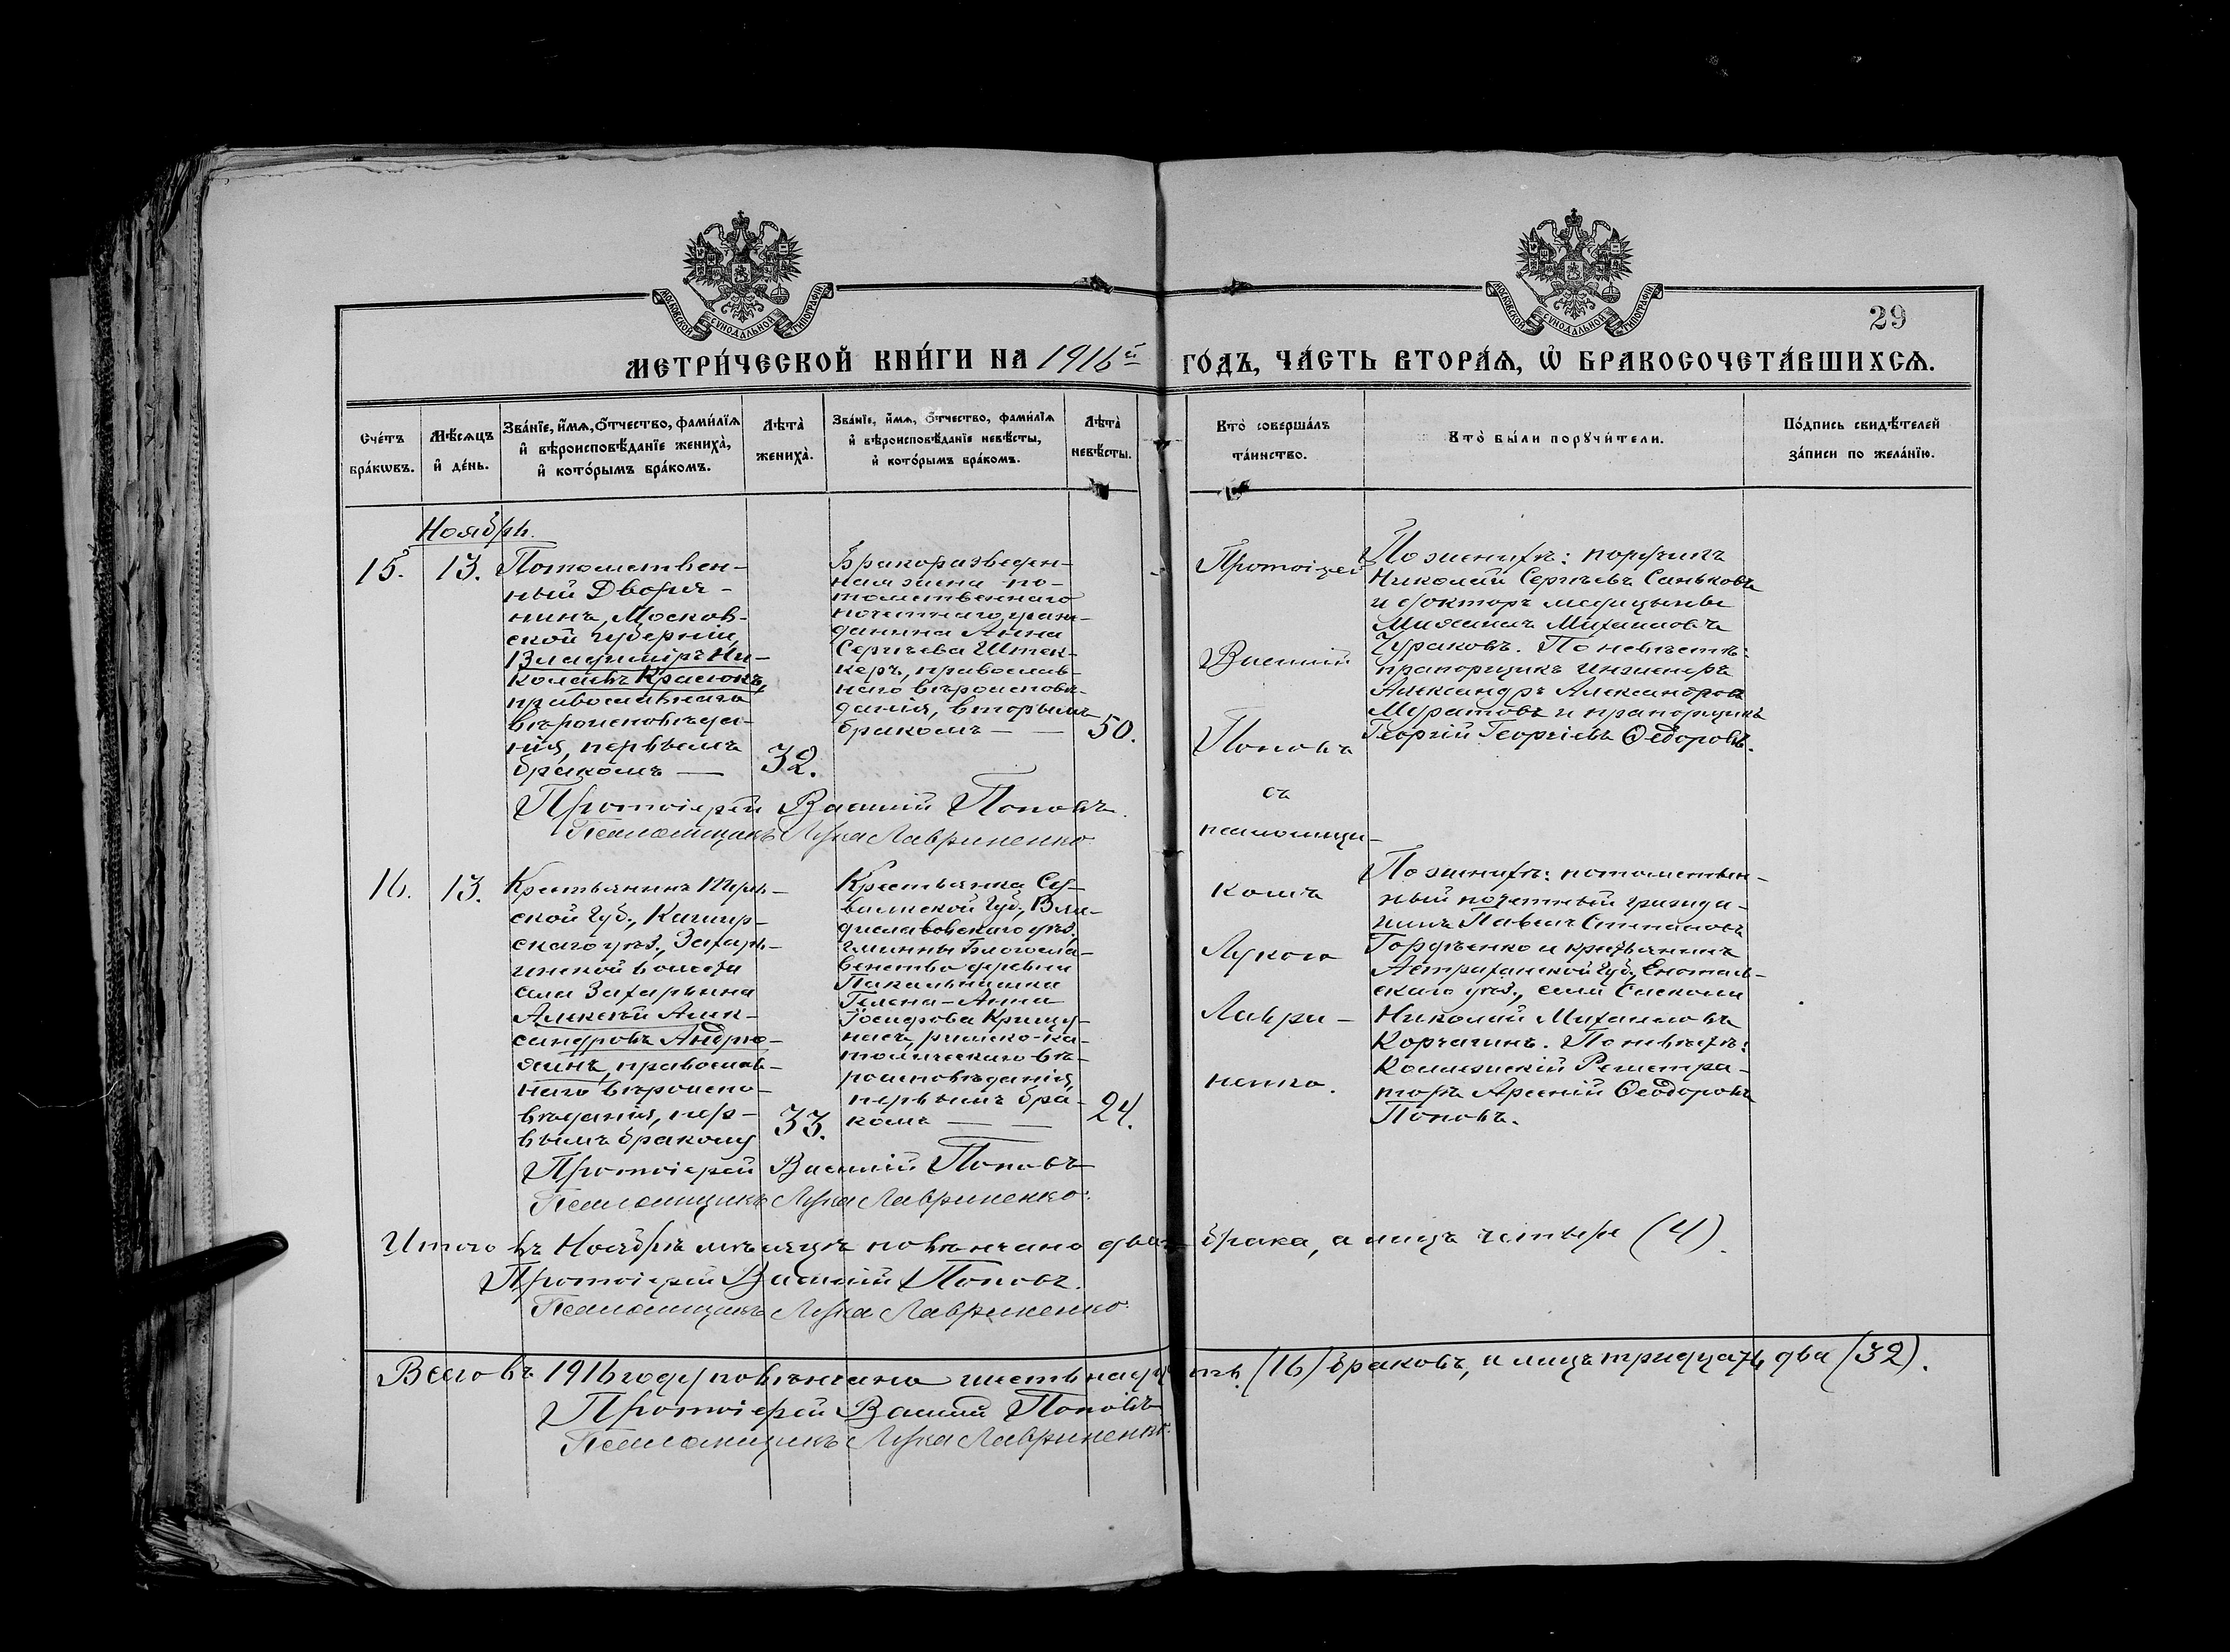 МОСКОВСКОЙ СѴНОДАЛЬНОЙ ТИПОГРАФІИ
МОСКОВСКОЙ СѴНОДАЛЬНОЙ ТИПОГРАФІИ
29
МЕТРИ́ЧЕСКОЙ КНИ́ГИ НА 1916й ГО́ДЪ, ЧА́СТЬ ВТОРА́Ѧ, Ѽ БРАКОСОЧЕТА́ВШИХСѦ.
Сче́тъ
бра́кѡвъ.
Мѣ́сѧцъ
и҆ де́нь.
Зва́нїе, и҆́мѧ, ѻ҆́тчество, фами́лїѧ
и҆ вѣроисповѣ́данїе жениха̀,
и҆ кото́рымъ бра́комъ.
Лѣ́та̀
жениха̀.
Зва́нїе, и҆́мѧ, ѻ҆́тчество, фами́лїѧ
и҆ вѣроисповѣ́данїе невѣ́сты,
и҆ кото́рымъ бра́комъ.
Лѣ́та̀
невѣ́сты.
Кто̀ соверша́лъ
та́инство.
Кто̀ бы́ли порꙋчи́тели.
По́дпись свидѣ́телей
за́писи по жела́нїю.
Ноябрь.
15.
13.
Потомствен-
ный Дворя-
нинъ, Москов-
ской губерніи,
Владиміръ Ни-
колаевъ Красюкъ,
православнаго
вѣроисповѣда-
нія, первымъ
бракомъ —
32.
Бракоразведен-
ная жена по-
томственнаго
почетнаго граж-
данина Анна
Сергѣева Штек-
керъ, православ-
наго вѣроисповѣ-
данія, вторымъ
бракомъ — —
50.
Протоіерей
Василій
Поповъ
съ
псаломщи-
комъ
Лукою
Лаври-
ненко.
По женихѣ: поручикъ
Николай Сергѣевъ Саньковъ
и докторъ медицины
Михаилъ Михаиловъ
Чураковъ. По невѣстѣ:
прапорщикъ инженеръ
Александръ Александровъ
Муратовъ и прапорщикъ
Георгій Георгіевъ Ѳедоровъ.
Протоіерей Василій Поповъ.
Псаломщикъ Лука Лавриненко
16.
13.
Крестьянинъ Твер-
ской Губ., Кашир-
скаго уѣз., Захарь-
инской волости
села Захарьина
Алексѣй Алек-
сандровъ Андрю-
хинъ, православ-
наго вѣроиспо-
вѣданія, пер-
вымъ бракомъ
33.
Крестьянка Су-
валкской Губ., Вла-
диславовскаго уѣз.,
гмины Благосла-
венство деревни
Пакальнишки
Гелена-Анна
Іосифова Кришу-
насъ, римско-ка-
толическаго вѣ-
роисповѣданія,
первымъ бра-
комъ — —
24.
По женихѣ: потомствен-
ный почетный гражда-
нинъ Павелъ Степановъ
Гордѣенко и крестьянинъ
Астраханской Губ., Енотаев-
скаго уѣз., села
Николай Михаиловъ
Корчагинъ. По невѣстѣ:
Коллежскій Регистра-
торъ Арсеній Ѳеодоровъ
Поповъ.
Протоіерей Василій Поповъ
Псаломщикъ Лука Лавриненко.
Итого въ Ноябрѣ мѣсяцѣ повѣнчано два брака, а лицъ четыре (4).
Протоіерей Василій Поповъ.
Псаломщикъ Лука Лавриненко.
Всего въ 1916 году повѣнчано шестнадцать (16) браковъ, а лицъ тридцать два (32).
Протоіерей Василій Поповъ
Псаломщикъ Лука Лавриненко.